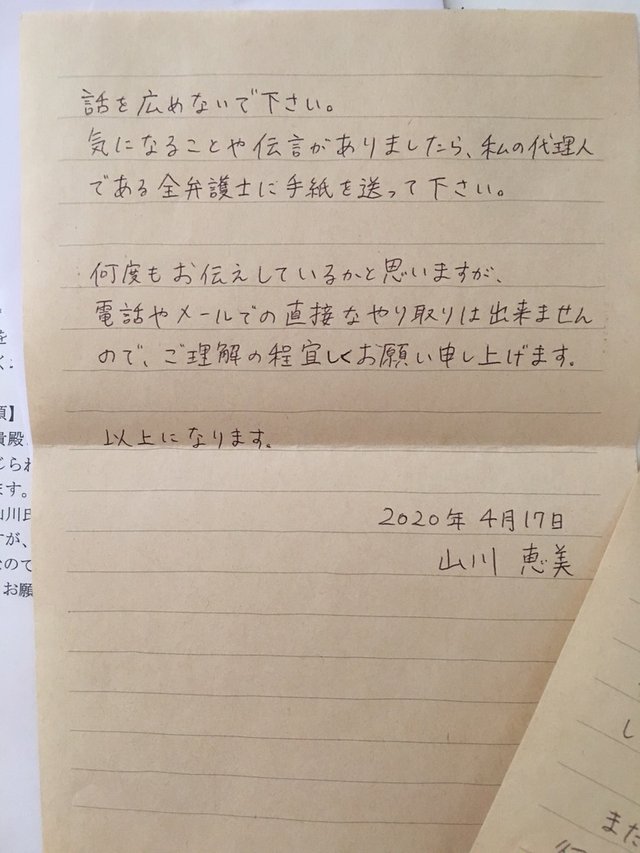 話を広めないで下さい。
気になることや伝言がありましたら、私の代理人
である全弁護士に手紙を送って下さい。
何度もお伝えしているかと思いますが、
電話やメールでの直接なやり取りは出来ません
ので、ご理解の程宜しくお願い申し上げます。
以上になります。
2020年4月17日
山川 恵美
を
く:
頁】
貴殿
じられ
ます。
山川氏
すが、
なので
お願
し
また